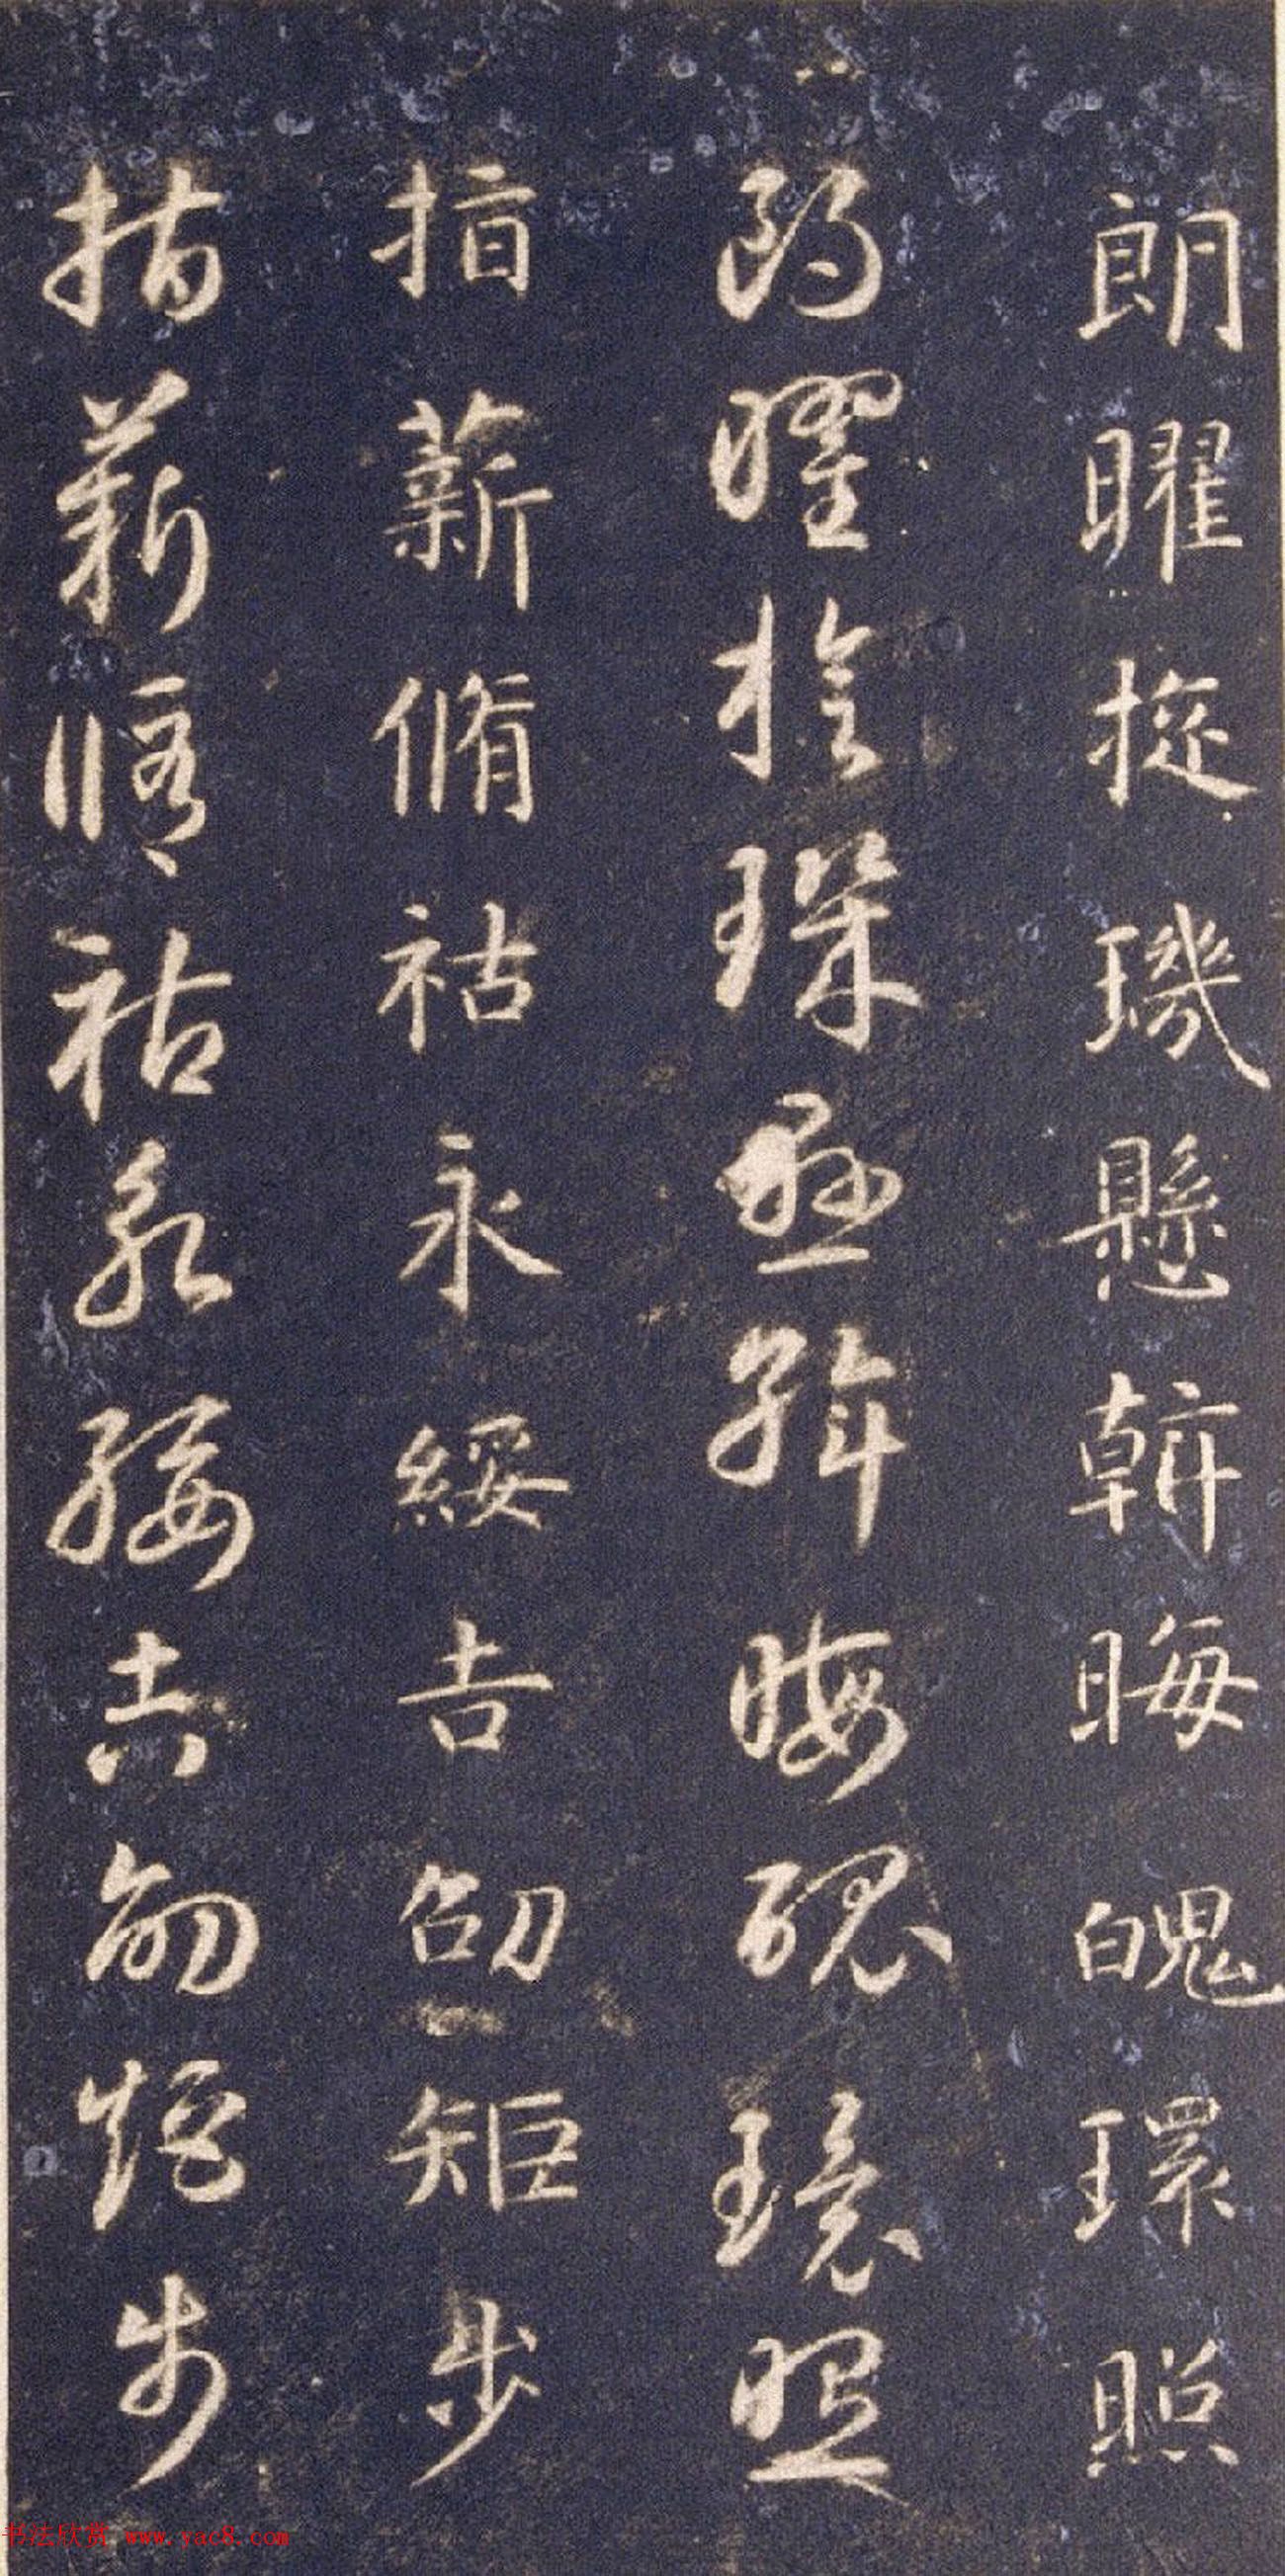 朗曜捉璣懸斡晦魄環照
朗曜捉璣懸斡晦魄環照
指薪脩祜永綏吉劭矩步
指薪脩祜永綏吉劭矩步
书法欣赏 www.yac8.com